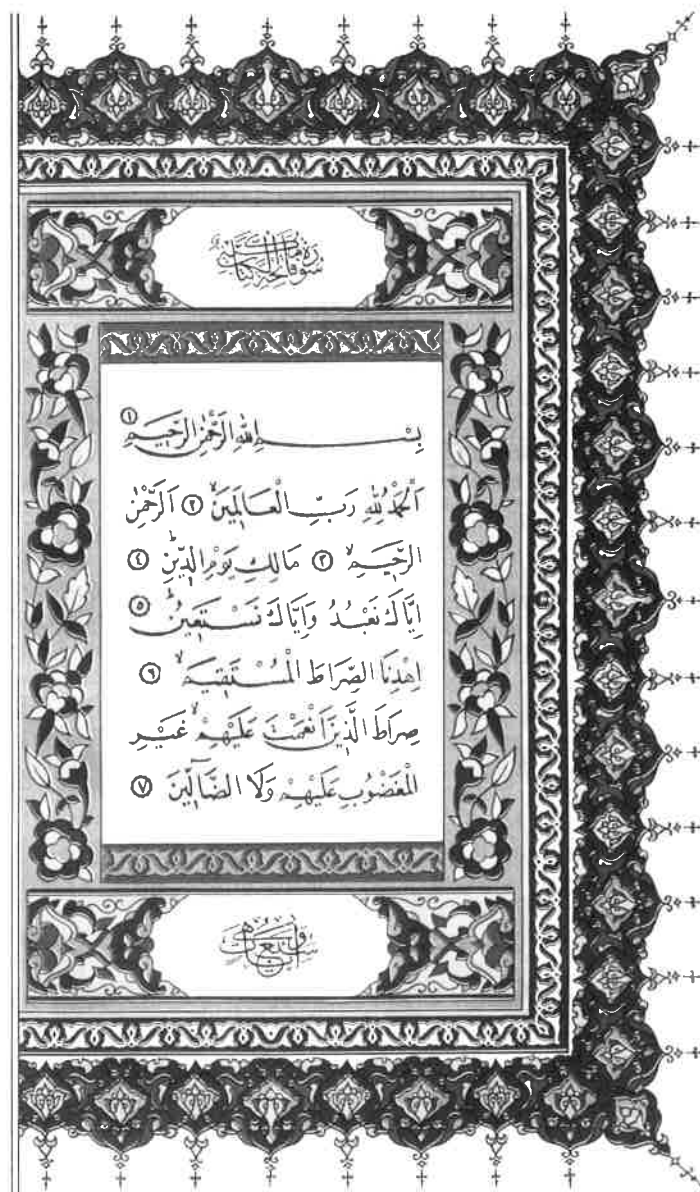 سورة فاتحة الكتاب
بِسْمِ اللّٰهِ الرَّحْمٰنِ الرَّحٖيمِ ١
اَلْحَمْدُ لِلّٰهِ رَبِّ الْعَالَمٖينَۙ ٢ اَلرَّحْمٰنِ
الرَّحٖيمِۙ ٣ مَالِكِ يَوْمِ الدّٖينِؕ ٤
اِيَّاكَ نَعْبُدُ وَاِيَّاكَ نَسْتَعٖينُؕ ٥
اِهْدِنَا الصِّرَاطَ الْمُسْتَقٖيمَۙ ٦
صِرَاطَ الَّذٖينَ اَنْعَمْتَ عَلَيْهِمْۙ غَيْرِ
الْمَغْضُوبِ عَلَيْهِمْ وَلَا الضَّٓالّٖينَ ٧